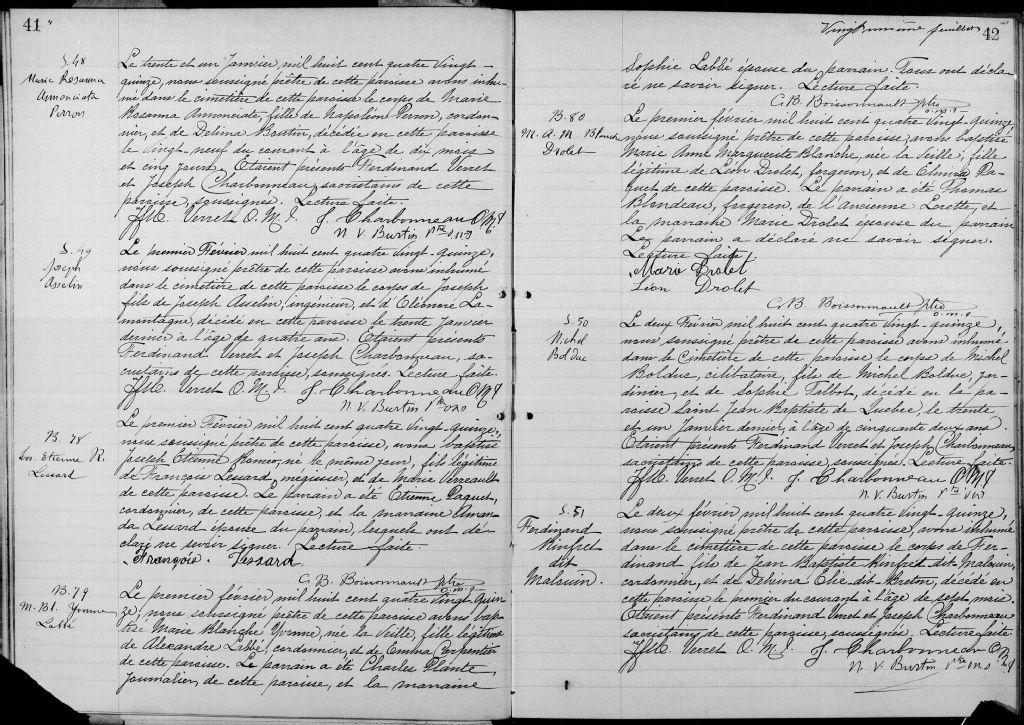 41
S. 48
Marie Rosanna
Annonciata
Perron
Le trente et un Janvier, mil huit cent quatre vingt-
quinze, nous soussigné prêtre de cette paroisse avons inhu-
mé dans le cimetière de cette paroisse le corps de Marie
Rosanna Annonciate, fille de Napoléon Perron, cordon-
nier, et de Delima Boutin, décédée en cette paroisse
le vingt-neuf du courant à l'âge de dix mois
et cinq jours. Etaient présents Ferdinand Verret
et Joseph Charbonneau, sacristains de cette
paroisse, soussignés. Lecture faite.
Verret O. M. I. J. Charbonneau O M I
N. V. Burtin Ptre O M I
S. 49
Joseph
Asselin
Le premier Février mil huit cent quatre vingt-quinze,
nous soussigné prêtre de cette paroisse avons inhumé
dans le cimetière de cette paroisse le corps de Joseph
fils de Joseph Asselin, ingénieur, et d'Eléonne La-
montagne, décédé en cette paroisse le trente Janvier
dernier à l'âge de quatre ans. Etaient présents
Ferdinand Verret et Joseph Charbonneau, sa-
cristains de cette paroisse, soussignés. Lecture faite.
Verret O. M. I. J. Charbonneau O M I
N. V. Burtin Ptre O M I
B. 78
Jos. Etienne R.
Lessard
Le premier Février mil huit cent quatre vingt-quinze,
nous soussigné prêtre de cette paroisse, avons baptisé
Joseph Etienne Romeo, né le même jour, fils légitime
de François Lessard, mégissier, et de Marie Verreault
de cette paroisse. Le parrain a été Etienne Paquet,
cordonnier, de cette paroisse, et la marraine Aman-
da Lessard épouse du parrain, lesquels ont dé-
claré ne savoir signer. Lecture faite.
François. Lessard.
C. B. Boissonnault ptre
o.m.i
B. 79
M. Bl. Yvonne
Labbé
Le premier février, mil huit cent quatre vingt quin-
ze, nous soussigné prêtre de cette paroisse avons bap-
tisé Marie Blanche Yvonne, née la veille, fille légitime
de Alexandre Labbé, cordonnier, et de Emma Carpentier
de cette paroisse. Le parrain a été Charles Plante
journalier, de cette paroisse, et la marraine
Vingt unième feuillet
42
Sophie Labbé épouse du parrain. Tous ont décla-
ré ne savoir signer. Lecture faite.
C. B. Boissonnault ptre
o.m.i
B. 80
M. A. M Blanche
Drolet
Le premier février mil huit cent quatre vingt-quinze,
nous soussigné prêtre de cette paroisse, avons baptisé
Marie Anne Marguerite Blanche, née la veille, fille
légitime de Léon Drolet, forgeron, et de Elmina Pa-
quet de cette paroisse. Le parrain a été Thomas
Blondeau, forgeron, de l'Ancienne Lorette, et
la marraine Marie Drolet épouse du parrain
Le parrain a déclaré ne savoir signer.
Lecture faite
Marie Drolet
Léon Drolet
C. B. Boissonnault ptre
o.m.i
S. 50
Michel
Bolduc
Le deux Février mil huit cent quatre vingt-quinze,
nous soussigné prêtre de cette paroisse avons inhumé
dans le cimetière de cette paroisse le corps de Michel
Bolduc, célibataire, fils de Michel Bolduc, jar-
dinier, et de Sophie Talbot, décédé en la pa-
roisse Saint Jean Baptiste de Quebec, le trente
et un Janvier dernier, à l'âge de cinquante deux ans.
Etaient présents Ferdinand Verret et Joseph Charbonneau,
sacristains de cette paroisse, soussignés. Lecture faite.
Verret O. M. I. J. Charbonneau O M I
N. V. Burtin Ptre O M I
S. 51
Ferdinand
Rinfret
dit
Malouin.
Le deux février, mil huit cent quatre vingt-quinze,
nous soussigné prêtre de cette paroisse, avons inhumé
dans le cimetière de cette paroisse le corps de Fer-
dinand fils de Jean Baptiste Rinfret dit Malouin,
cordonnier, et de Delvina Che dit Breton, décédé en
cette paroisse le premier du courant à l'âge de sept mois.
Etaient présents Ferdinand Verret et Joseph Charbonneau
sacristains de cette paroisse, soussignés. Lecture faite.
Verret O. M. I. J. Charbonneau O M I
N. V. Burtin Ptre O M I